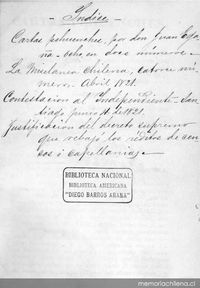 - Indice -
Cartas pehuenches, por don Juan Ega-
ña - ocho en doce números. -
La Miscelanea Chilena, catorce nú-
meros. Abril 1821.
Contestacion al Independiente - San-
tiago junio 11 de 1821.
Justificacion del decreto supremo
que rebajó los réditos de cen-
sos i capellanias. -
BIBLIOTECA NACIONAL
BIBLIOTECA AMERICANA
"DIEGO BARROS ARANA"
memoriachilena.cl